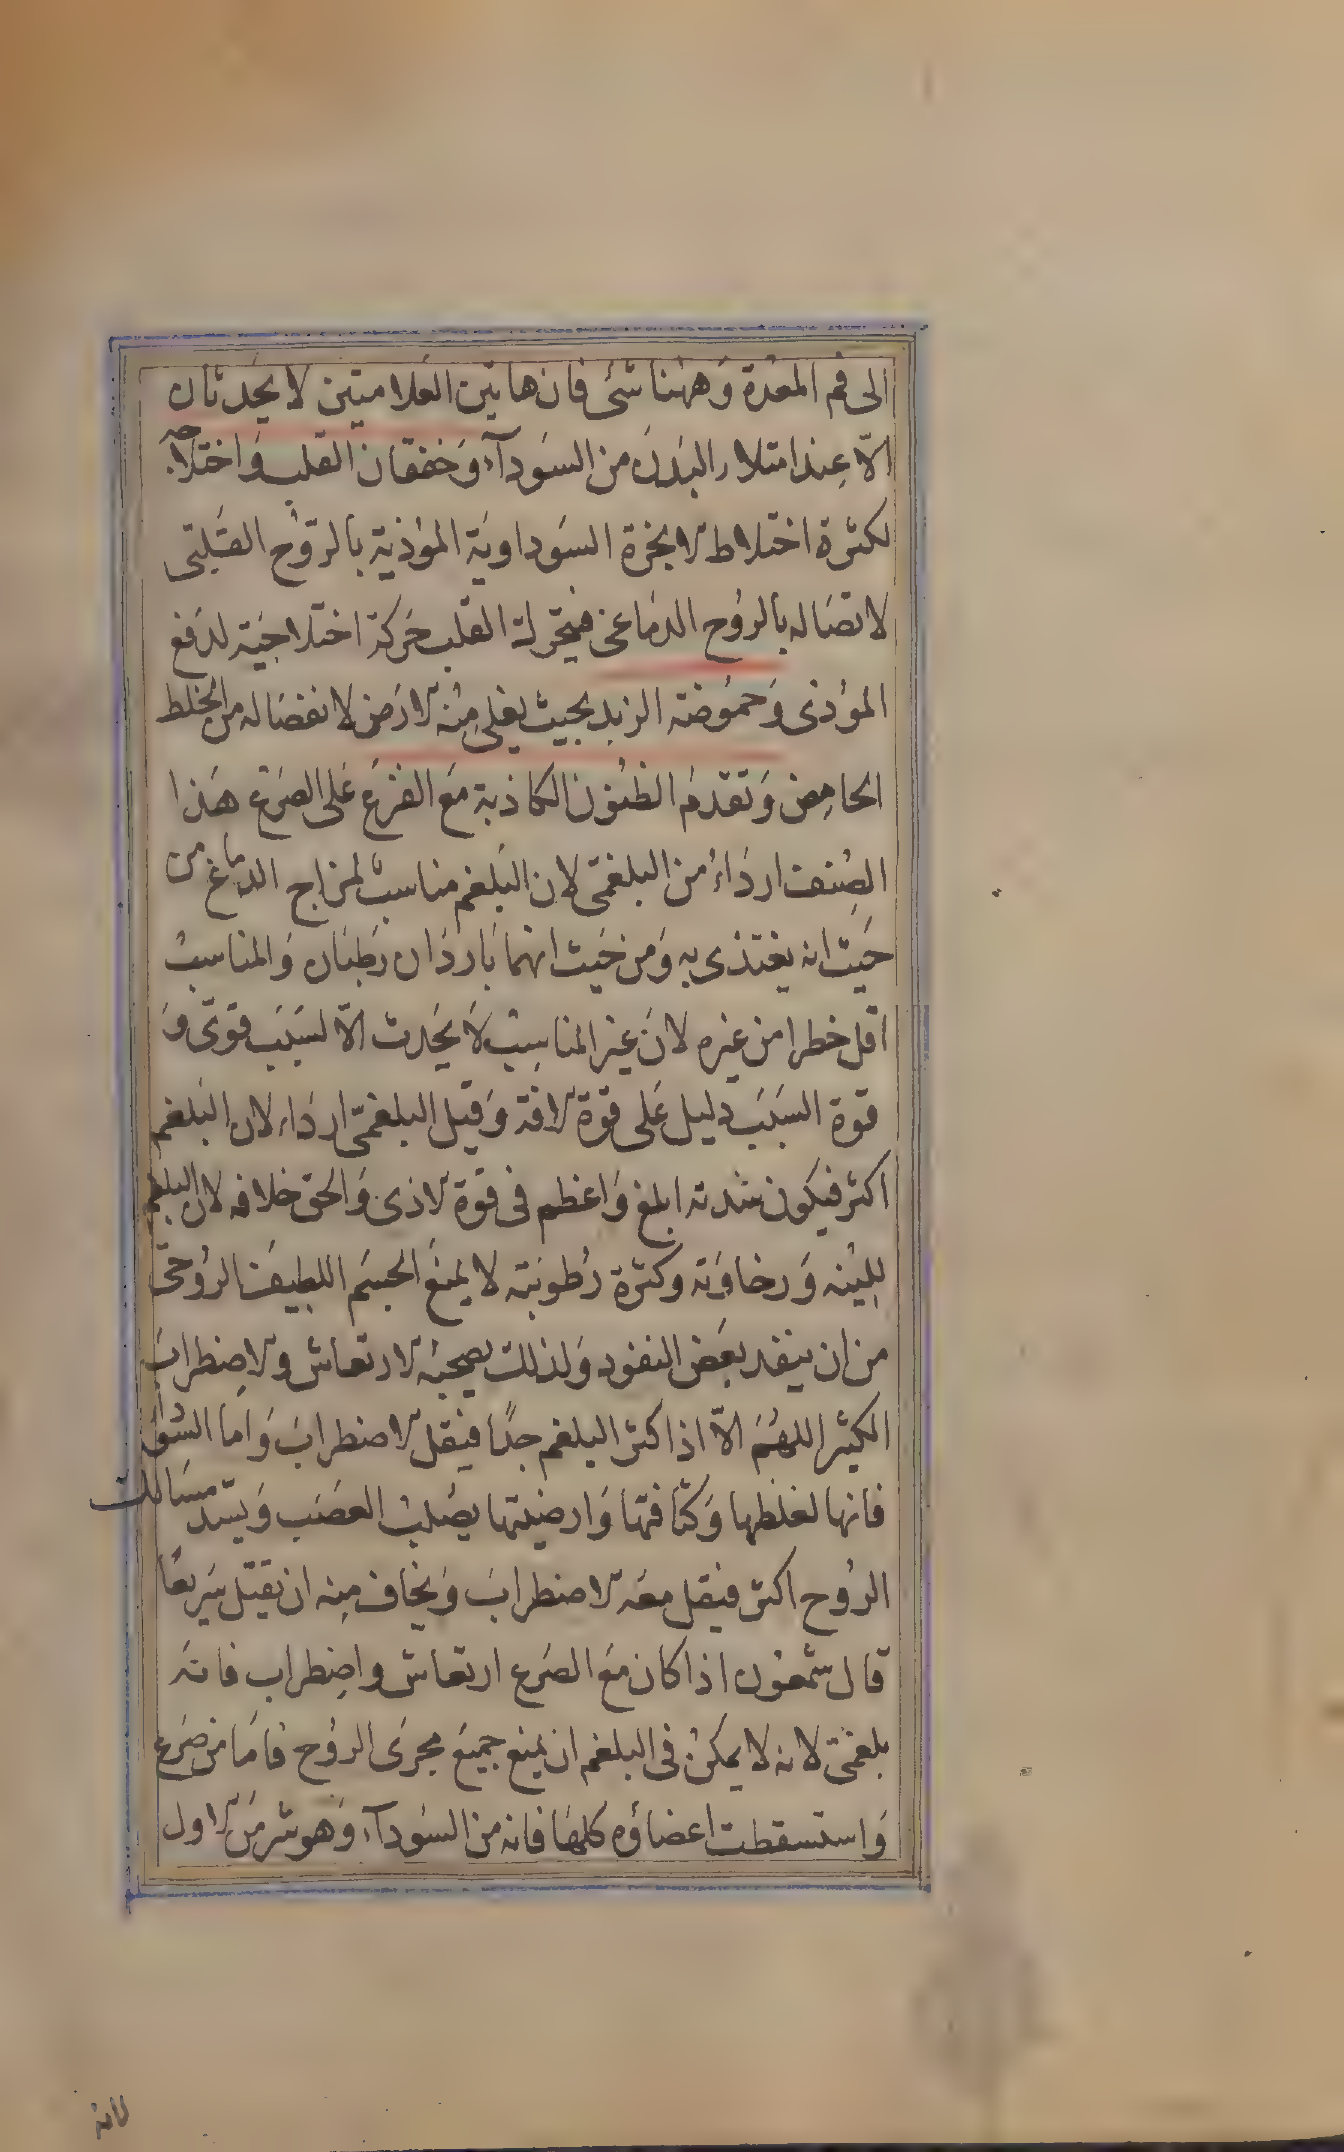 الى فم المعدة وههنا شئ فان هاتين العلامتين لا يحدثان
الّا عند امتلاء البدن من السودآء وخفقان القلب واختلاجه
لكثرة اختلاط الابخرة السوداوية المؤذية بالروح القلبى
لاتصاله بالروح الدماغى فيتحرك القلب حركة اختلاجية لدفع
المؤذى وحموضة الزبد بحيث يغلى منه الارض لانفصاله من الخلط
الحامض وتقدم الظنون الكاذبة مع الفزع على الصرع هذا
الصنف ارداء من البلغمى لان البلغم مناسب لمزاج الدماغ من
حيث انه يغتذى به ومن حيث انهما باردان رطبان والمناسب
اقل خطرا من غيره لان غير المناسب لا يحدث الّا لسبب قوى و
قوة السبب دليل على قوة الافة وقيل البلغمى ارداء لان البلغم
اكثر فيكون شدته ابلغ واعظم فى قوة الاذى والحق خلافه لان البلغم
للينه ورخاوته وكثرة رطوبته لا يمنع الجسم اللطيف الروحى
من ان ينفد بعض النفود ولذلك يصحبه الارتعاش والاضطراب
الكثير اللهم الّا اذا كثر البلغم جدًا فيقل الاضطراب واما السودا
فانها لغلظها وكثافتها وارضيتها يصلب العصب ويسد مسالك
الروح اكثر فيقل معه الاضطراب ويخاف منه ان يقتل سريعا
قال شمعون اذا كان مع الصرع ارتعاش واضطراب فانه
بلغمى لانه لا يمكن فى البلغم ان يمنع جميع مجرى الروح فاما من صرع
واستسقطت اعضاؤه كلها فانه من السودآء وهو شر من الاول
لانه